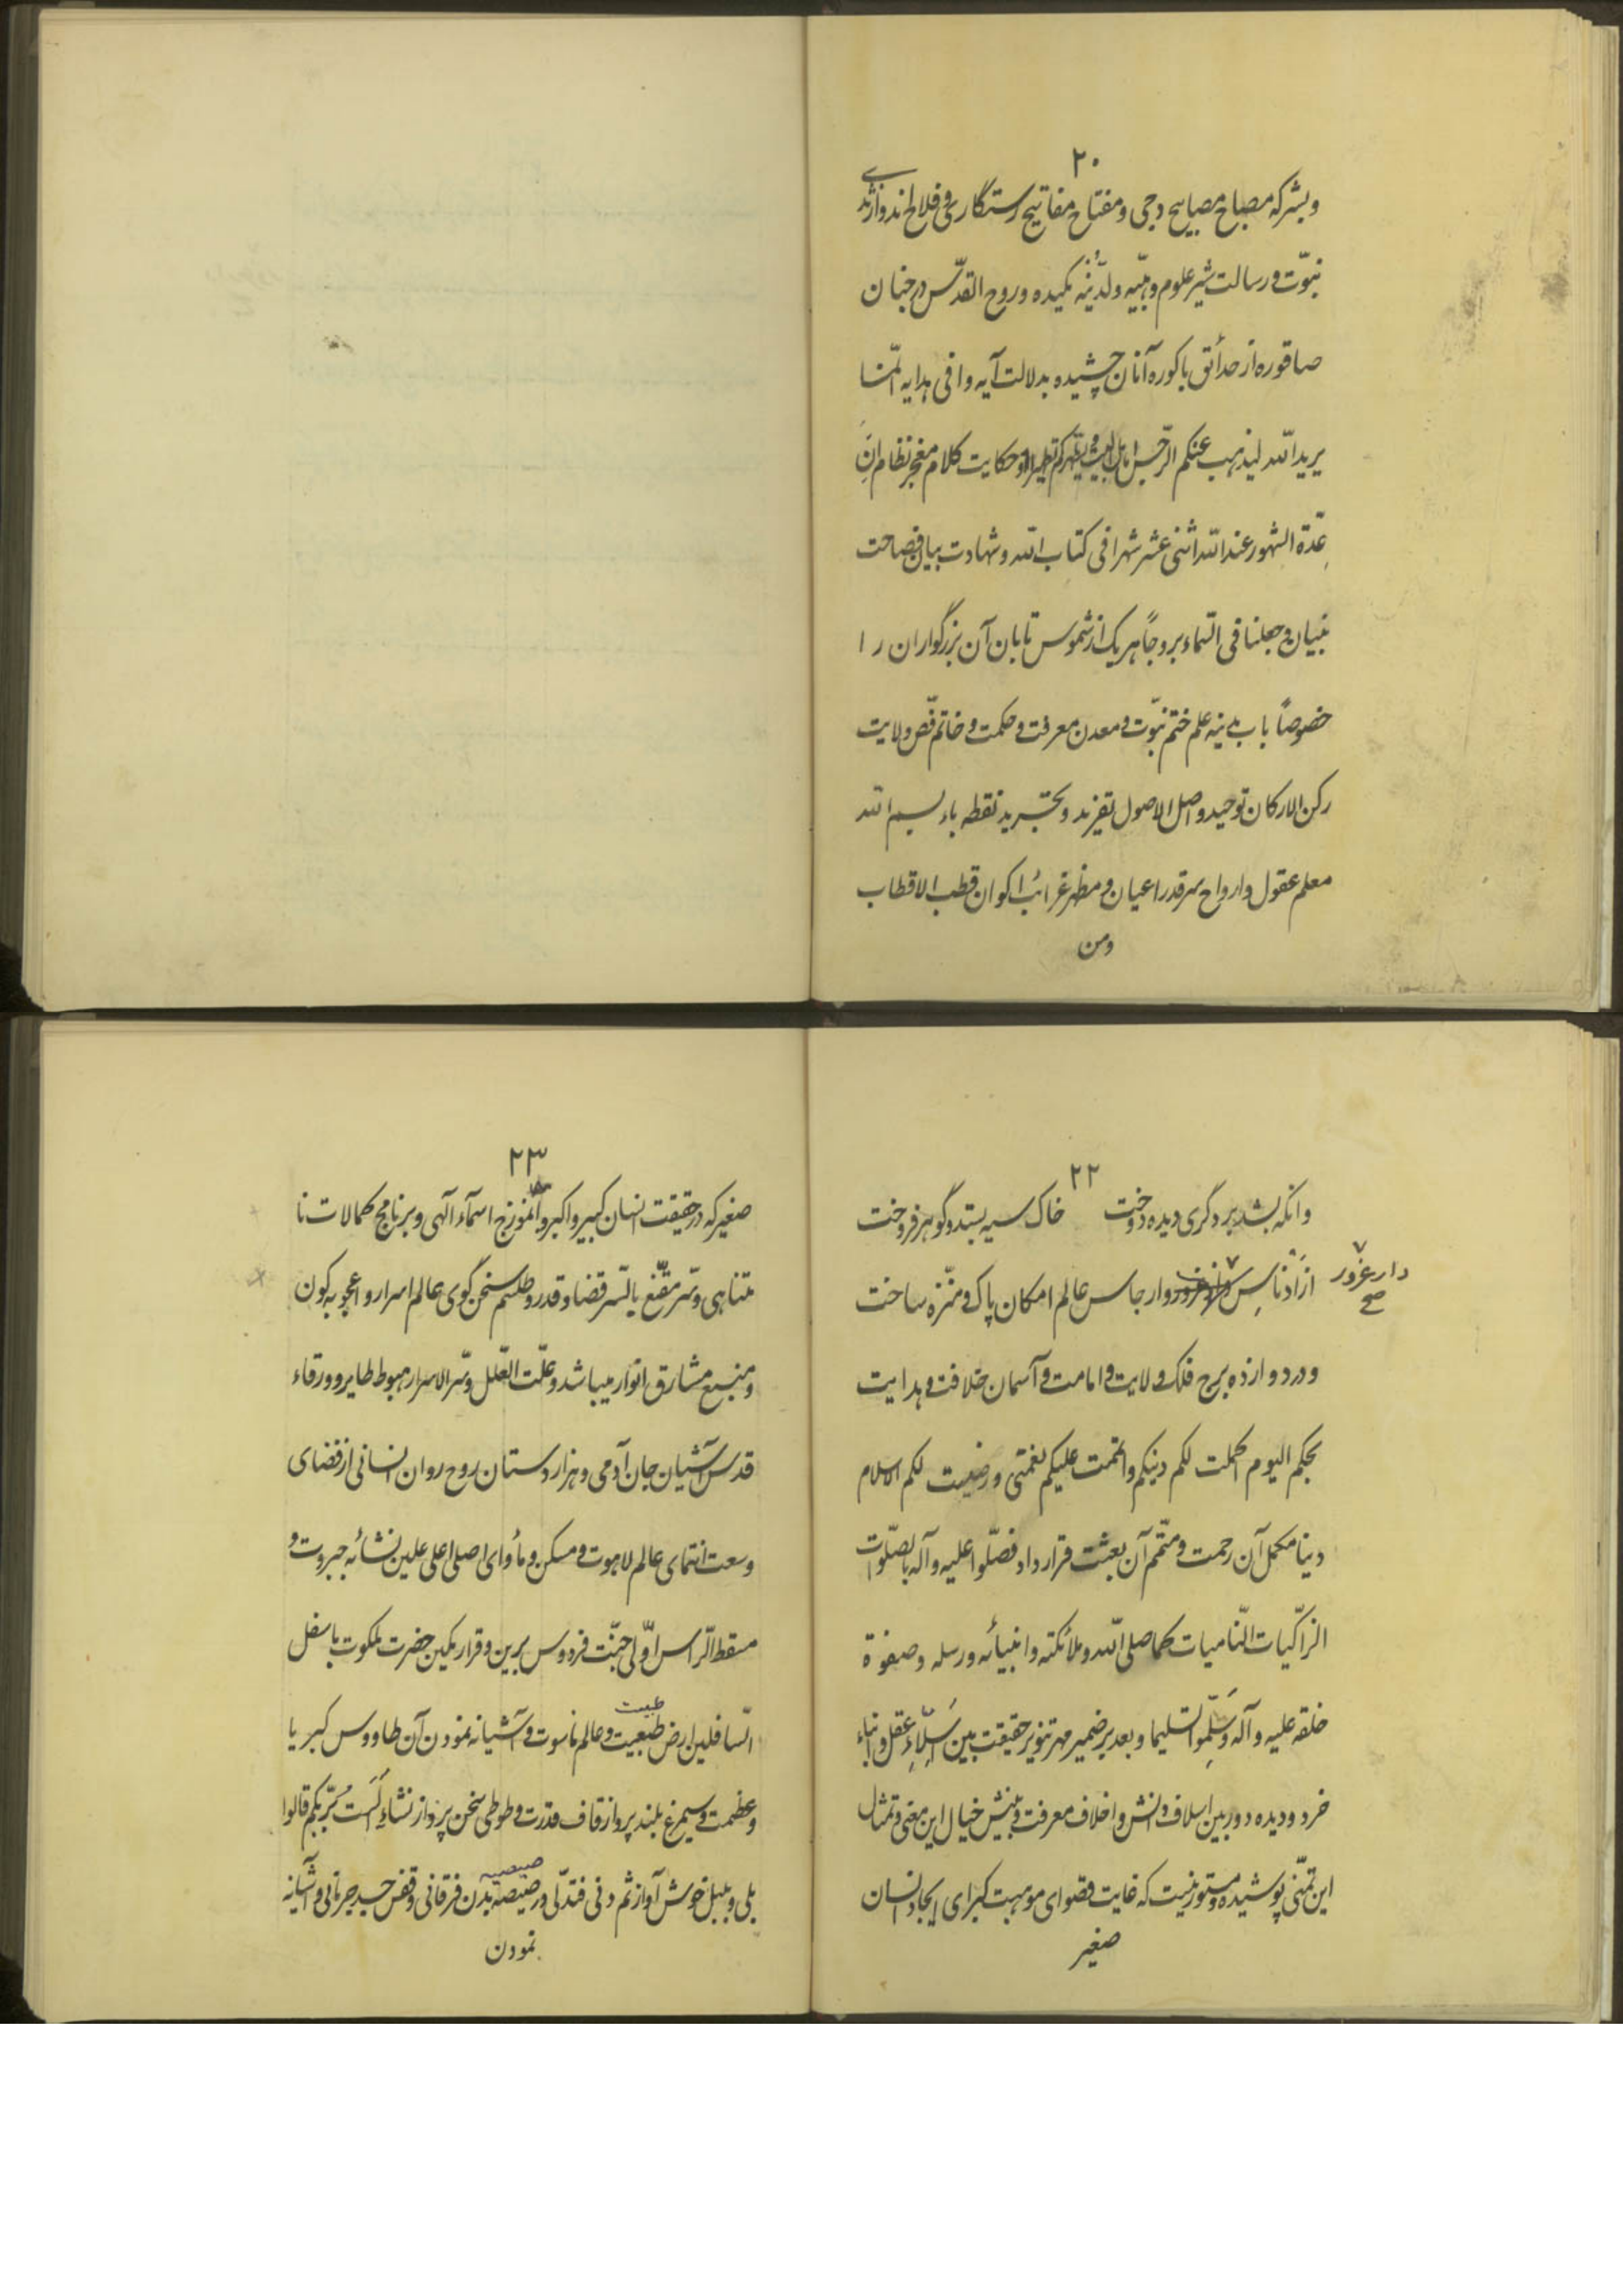 ۲۰
و بشر که مصباح مصابیح دجی و مفتاح مفاتیح رستگاری و فلاح اند و از
نبوّت و رسالت شیر علوم وهبیّه و لدنّیّه مکیده و روح القدس در جنان
صاقوره از حدائق باکوره آنان چشیده بدلالت آیه وافی هدایه انّما
یرید الله لیذهب عنکم الرّجس اهل البیت و یطهّرکم تطهیرا و حکایت کلام معجز نظام انّ
عدّة الشهور عند الله اثنی عشر شهرا فی کتاب الله و شهادت بیان فصاحت
بنیان و جعلنا فی السّماء بروجاً هر یک از شموس تابان آن بزرگواران را
خصوصاً باب مدینه علم ختم نبوّت و معدن معرفت و حکمت و خاتم فصّ ولایت
رکن الارکان توحید و اصل الاصول تفرید و تجرید نقطه باء بسم الله
معلم عقول و ارواح سر قدر اعیان و مظهر غرائب اکوان قطب الاقطاب
ومن
۲۲
وانکه بشد بر دگری دیده دوخت خاک سیه بستد و گوهر فروخت
از ادناس وارجاس عالم امکان پاک و منزّه ساخت
دار غرور
صح
و در دوازده برج فلک ولایت و امامت و آسمان خلافت و هدایت
بحکم الیوم اکملت لکم دینکم و اتممت علیکم نعمتی و رضیت لکم الاسلام
دینا مکمل آن رحمت و متمّم آن بعثت قرار داد فصلّوا علیه و آله بالصّلوات
الزاکیات النّامیات کما صلی الله و ملائکته و انبیائه و رسله و صفوة
خلقه علیه و آله و سَلِّموا تسلیما و بعد بر ضمیر مهر تنویر حقیقت بین عقل و ابناء
خرد و دیده دوربین اسلاف دانش و اخلاف معرفت و بینش خیال این معنی و تمثال
این تمنّی پوشیده و مستور نیست که غایت قصوای موهبت کبرای ایجاد انسان
صغیر
۲۳
صغیر که در حقیقت انسان کبیر و اکبر و انموزج اسمآء آلهی و برنامج کمالات نا
متناهی و سّر مقنّع بالسّر قضا و قدر و طلسم سخن گوی عالم اسرار و اعجوبه کون
و منبع مشارق انوار میباشد و علّت العّلل و سّر الاسرار هبوط طایر و ورقاء
قدس آشیان جان آدمی و هزار دستان روح روان انسانی از فضای
وسعت انتمای عالم لاهوت و مسکن و مأوای اصلی اعلی علین نشائه جبروت و
مسقط الرّاس اوّلی جنّت فردوس برین و قرار مکین حضرت ملکوت باسفل
السّافلین ارض طبعیت و عالم ناسوت و آشیانه نمودن آن طاووس کبریا
طبیعت
و عظمت و سیمرغ بلند پرواز قاف قدرت و طوطی سخن پرداز نشاء اَلَستُ بربّکم قالوا
بلی و بلبل خوش آواز ثم دنی فتدلّی در صیصه بدن فرقانی و قفس جسد جرمانی و آشیانه
صیصیه
نمودن